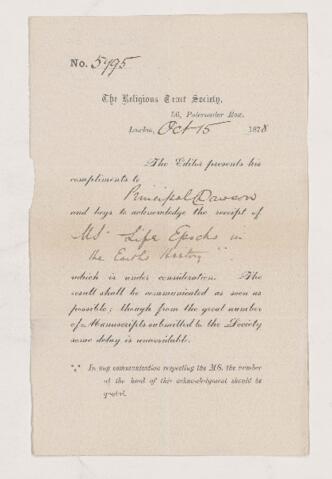 No. 5795
The Religious Tract Society,
56, Paternoster Row,
London, Oct 15 1878
The Editor presents his
compliments to
Principal Dawson
and begs to acknowledge the receipt of
MS "Life Epochs in
the Earth's History"
which is under consideration. The
result shall be communicated as soon as
possible; though from the great number
of Manuscripts submitted to the Society
some delay is unavoidable.
*** In any communication respecting the MS. the number
at the head of this acknowledgment should be
quoted.